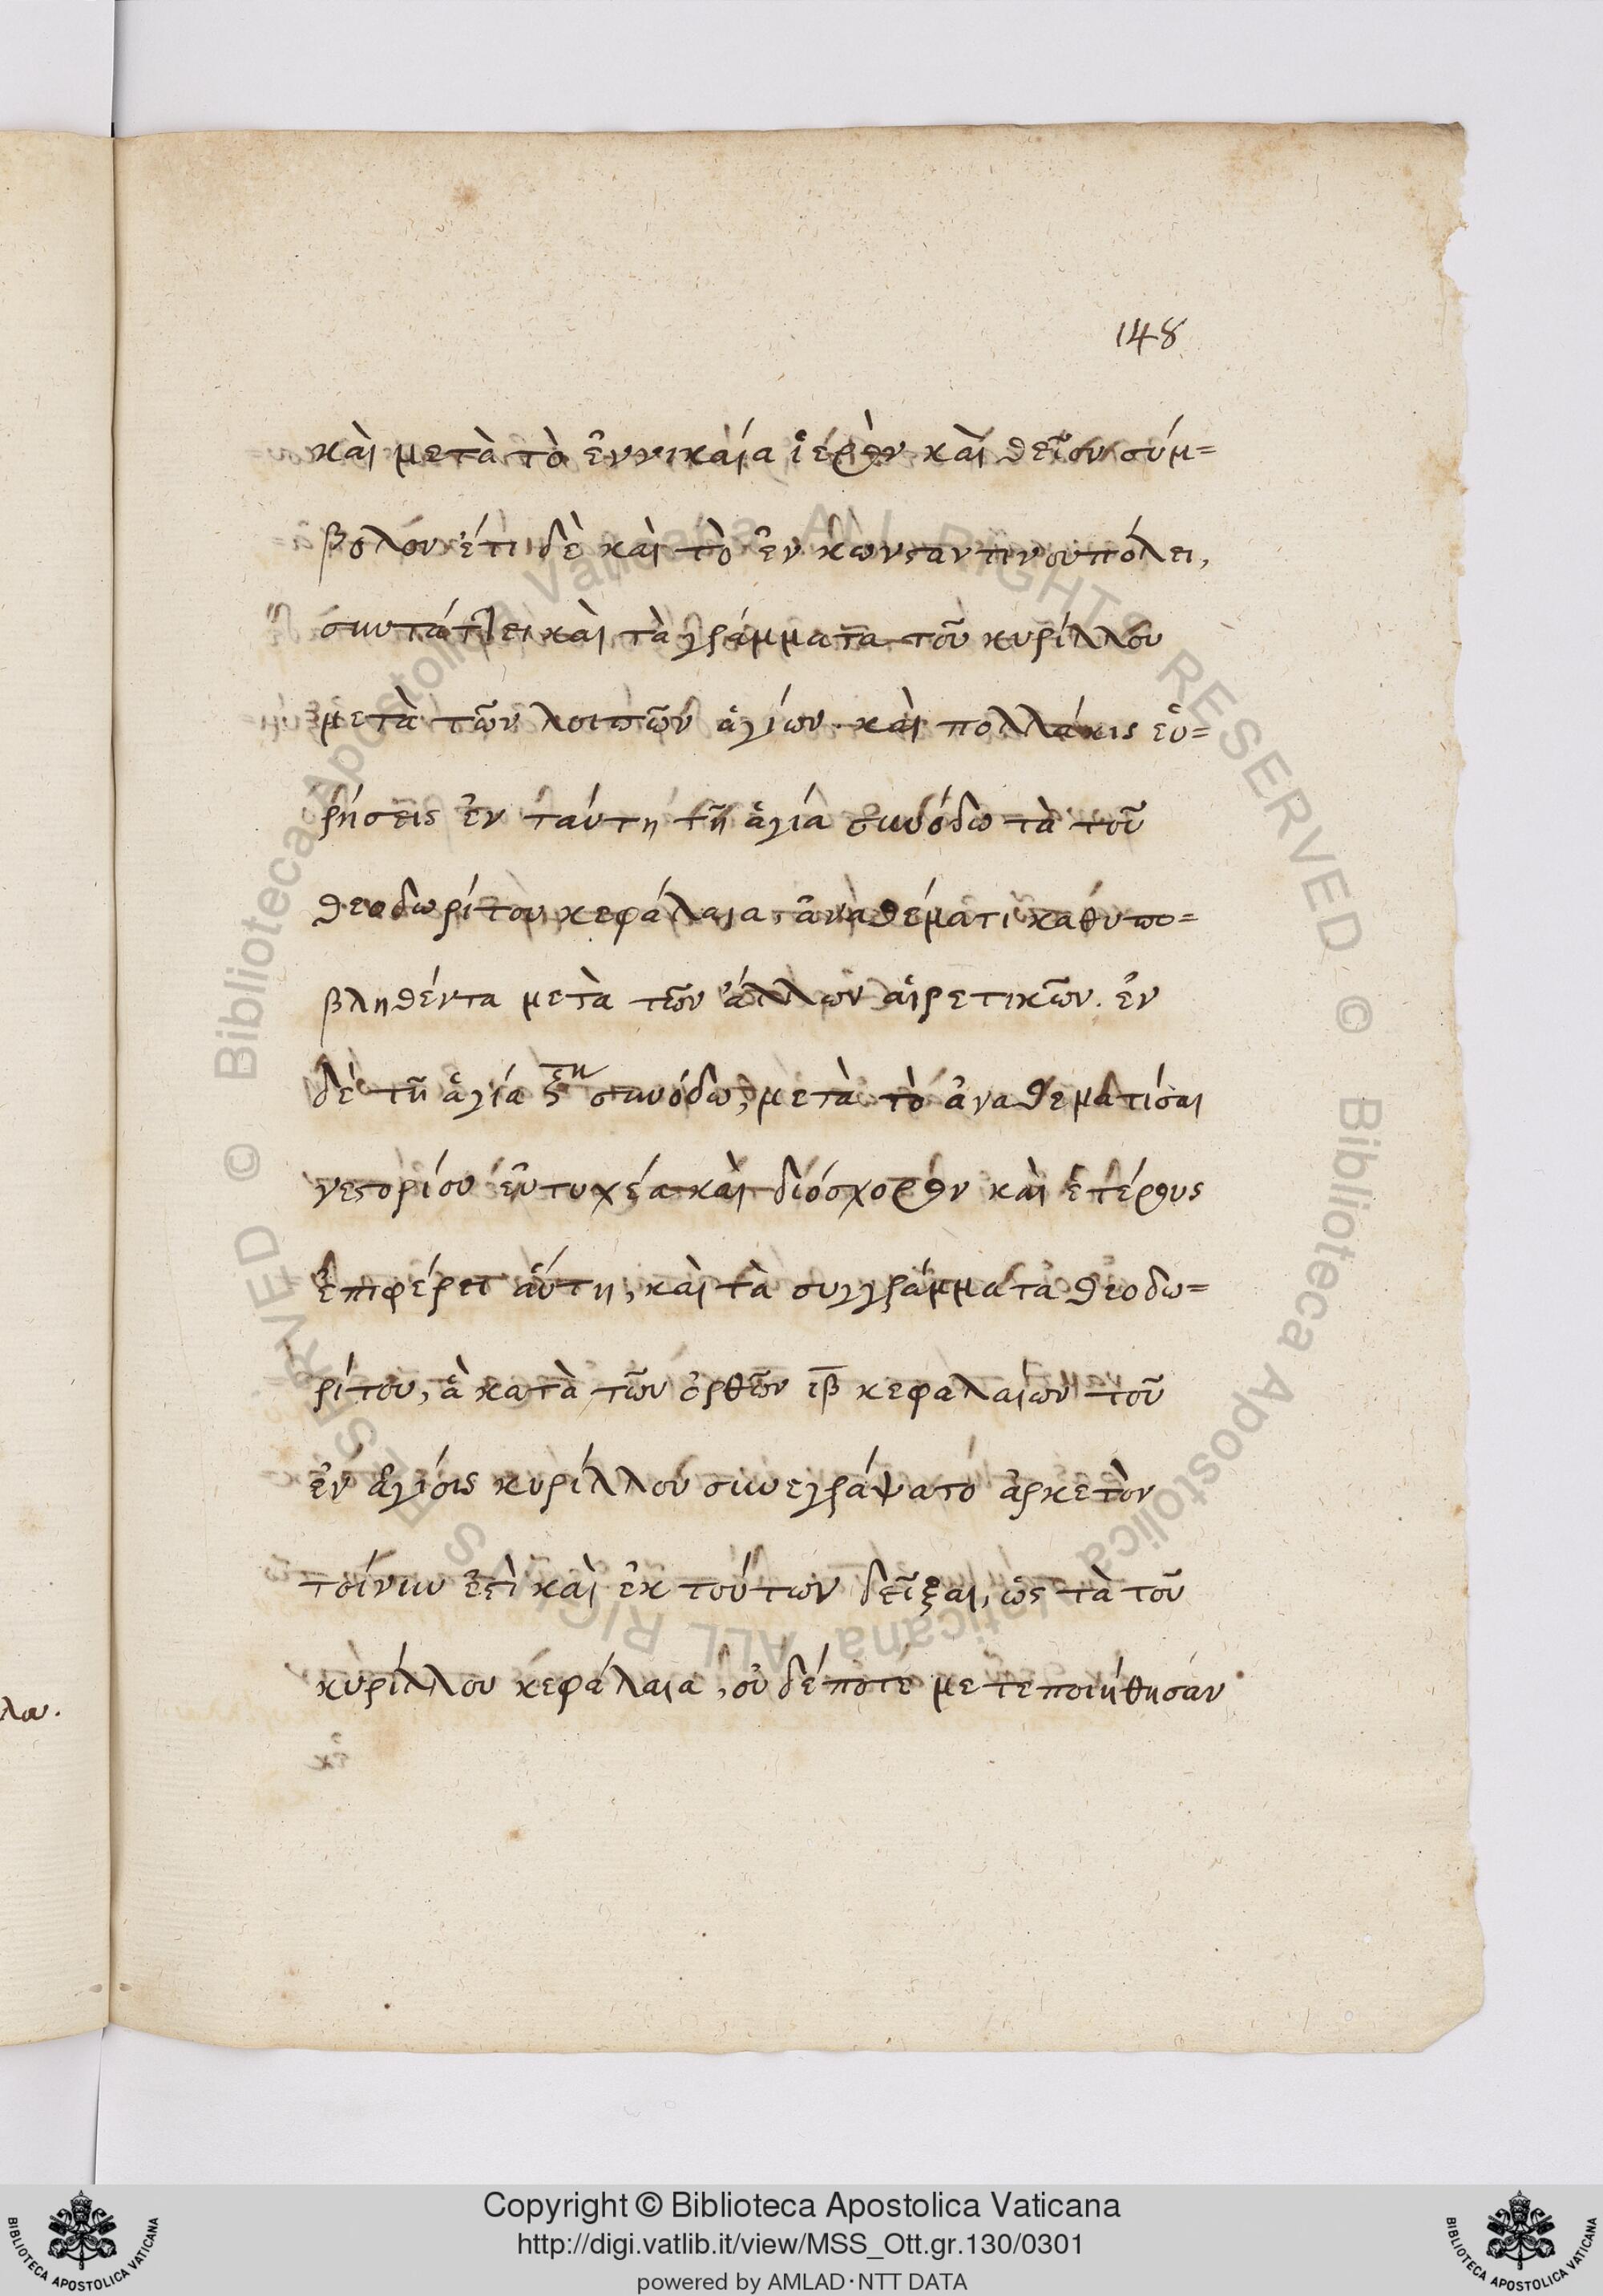 148
καὶ μετὰ τὸ ἐννικαία ἱερὸν καὶ θεῖον σύμ=
βολον ἔτι δὲ καὶ τὸ ἐν κωνσταντινουπόλει,
συντάττει καὶ τὰ γράμματα τοῦ κυρίλλου
μετὰ τῶν λοιπῶν ἁγίων. καὶ πολλάκις εὑ=
ρήσεις ἐν ταύτη τῆ ἁγία συνόδω τὰ τοῦ
θεοδωρίτου κεφάλαια, ἀναθέματι καθυπο=
βληθέντα μετὰ τῶν ἄλλων αἱρετικῶν. ἐν
δὲ τῆ ἁγία ϛτη συνόδω, μετὰ τὸ ἀναθεματίσαι
νεστορίου εὐτυχέα καὶ διόσχορον καὶ ἑτέρους
ἐπιφέρει αὕτη, καὶ τὰ συγγράμματα θεοδω=
ρίτου, ἃ κατὰ τῶν ὀρθῶν ιβ κεφαλαίων τοῦ
ἐν ἁγίοις κυρίλλου συνεγράψατο ἀρκετὸν
τοίνυν ἐστὶ καὶ ἐκ τούτων δεῖξαι, ὡς τὰ τοῦ
κυρίλλου κεφάλαια, οὐδέποτε μετεποιήθησαν
λω.
Copyright © Biblioteca Apostolica Vaticana
http://digi.vatlib.it/view/MSS_Ott.gr.130/0301
powered by AMLAD·NTT DATA
BIBLIOTECA APOSTOLICA VATICANA
BIBLIOTECA APOSTOLICA VATICANA
© Biblioteca Apostolica Vaticana ALL RIGHTS RESERVED © Biblioteca Apostolica Vaticana ALL RIGHTS RESERVED